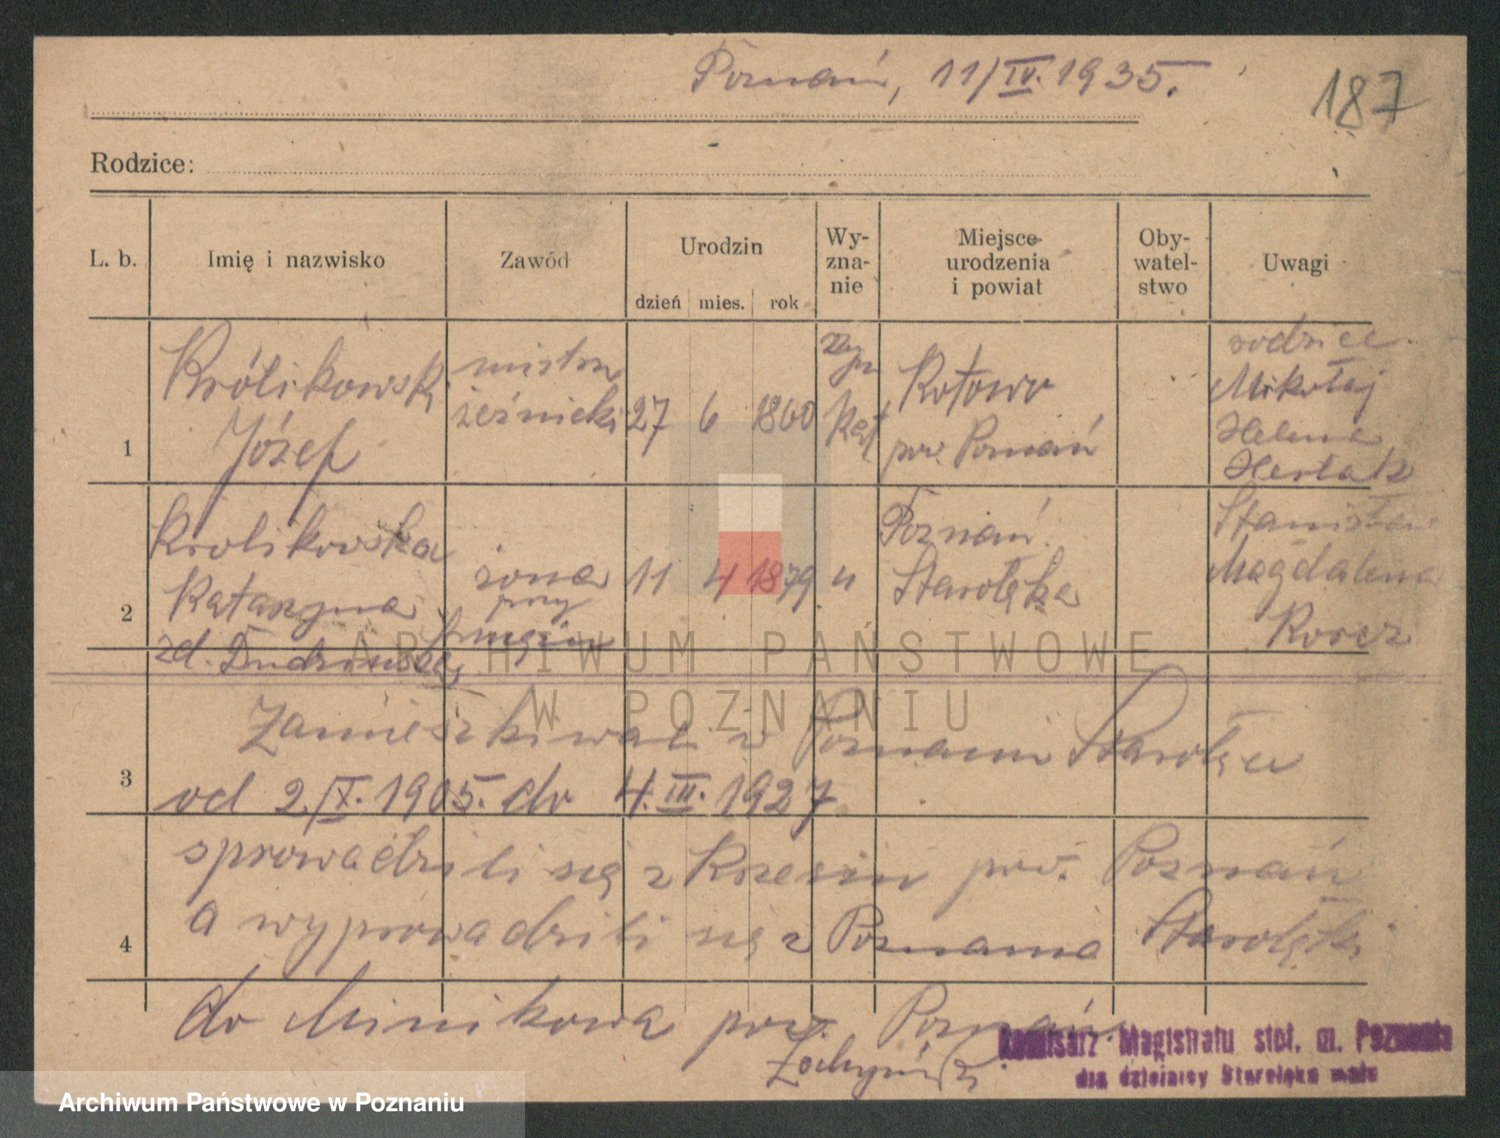 Poznań, 11/IV. 1935.
187
Rodzice:
L. b.
Imię i nazwisko
Zawód
Urodzin
dzień mies. rok
Wy-
zna-
nie
Miejsce
urodzenia
i powiat
Oby-
watel-
stwo
Uwagi
1
Królikowski
Józef
mistrz
27 6 1860
Kat
Kotowo
pow. Poznań
rodzice
Mikołaj
Helena
2
Krolikowska
Katarzyna
zd.
żona
przy
mężu
11 4 1879 "
Poznań
Starołęka
Stanisław
Magdalena
3
Zamieszkiwali w Poznaniu Starołęce
od 2./X. 1905. do 4. III. 1927
sprowadzili się z pow. Poznań
4
a wyprowadzili się z Poznania Starołęki
do Minikowa pow. Poznań.
Komisarz Magistratu stoł. m. Poznania
dla dzielnicy Starołęka mała
ARCHIWUM PAŃSTWOWE
W POZNANIU
Archiwum Państwowe w Poznaniu